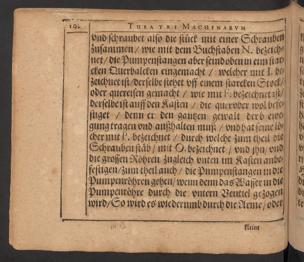 192. THEATRI MACHINARVM
vnd schraubet also die stück mit einer Schrauben
zusammen / wie mit dem Buchstaben N. bezeich-
net / die Pumpenstangen aber seind oben in ein star-
cken Querbalcken eingemacht / welcher mit I. be-
zeichnet ist / derselbe stehet vff einem starcken Stock /
oder quereisen gemacht / wie mit bezeichnet ist /
derselbe ist auff den Kasten / die quer ober wol befe-
stiget / denn er den gantzen gewalt der bewe-
gung tragen vnd außhalten muß / vnd hat seine
cher mit bezeichnet / durch welche zum theil die
Schrauben stäb / mit O. bezeichnet / vnd vnd
die grossen Röhren zugleich vnten im Kasten anbe-
festigen / zum theil auch / die Pumpenstangen in die
Pumpenröhren gehen / wenn denn das Wasser in die
Pumpenröhre durch die vntern Ventiel gezogen
wird / So wird es wiederumb durch die Arme / oder
kleine